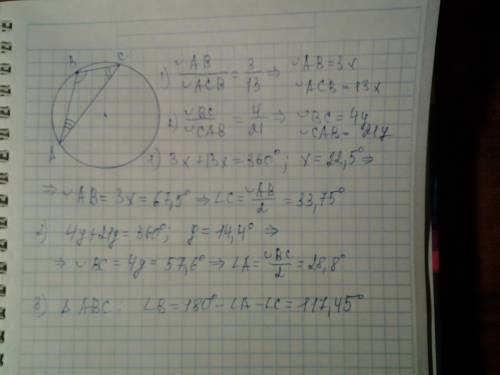 B
C
A
1) ◡AB / ◡ACB = 3/13 ⇒ ◡AB=3x
◡ACB=13x
2) ◡BC / ◡CAB = 4/21 ⇒ ◡BC=4y
◡CAB=21y
1) 3x+13x=360°; x=22,5° ⇒
⇒ ◡AB=3x=67,5° ⇒ ∠C= ◡AB/2 =33,75°
2) 4y+21y=360°; y=14,4° ⇒
⇒ ◡BC=4y=57,6° ⇒ ∠A= ◡BC/2 =28,8°
3) Δ ABC: ∠B=180°-∠A-∠C=117,45°